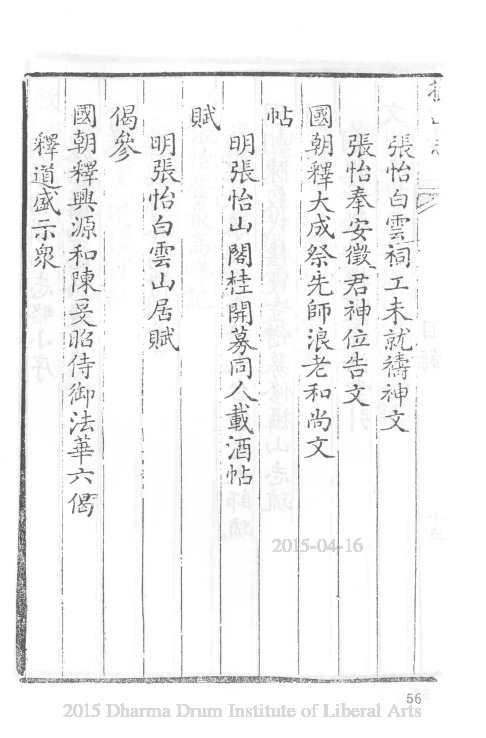 張怡白雲祠工未就禱神文
張怡奉安徵君神位告文
國朝釋大成祭先師浪老和尚文
帖
明張怡山閣桂開募同人載酒帖
賦
明張怡白雲山居賦
偈參
國朝釋興源和陳旻昭侍御法華六偈
釋道盛示衆
2015-04-16
56
2015 Dharma Drum Institute of Liberal Arts